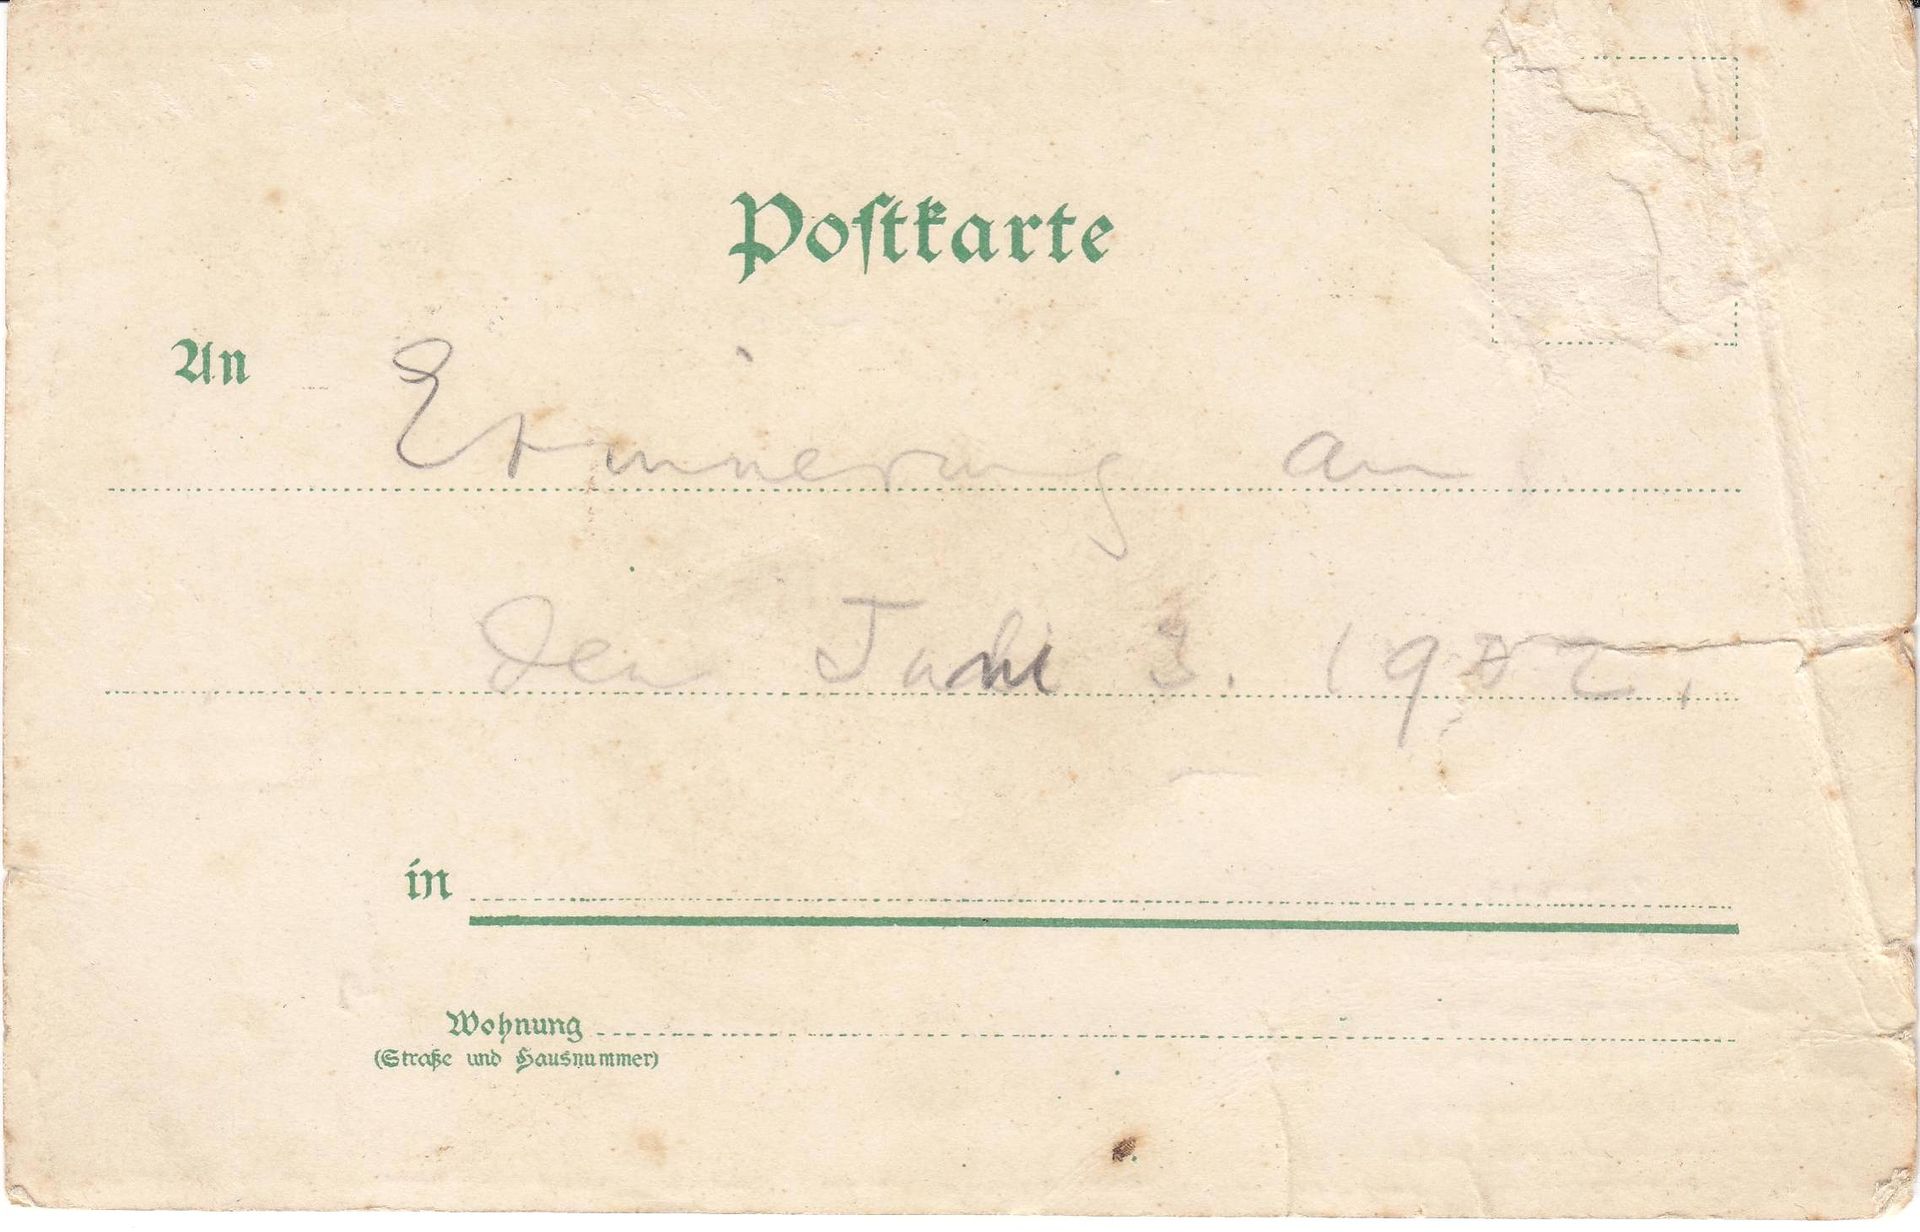 Postkarte
An Erinnerung an
den Juni 3. 1902.
in
Wohnung
(Straße und Hausnummer)